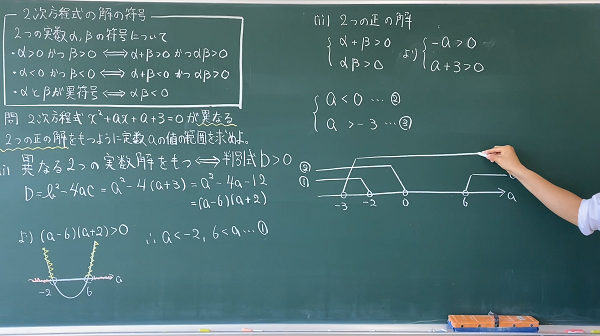 2次方程式の解の符号
2つの実数α,βの符号について
・α>0かつβ>0⇔α+β>0かつαβ>0
・α<0かつβ<0⇔α+β<0かつαβ>0
・αとβが異符号⇔αβ<0
問 2次方程式x²+ax+a+3=0が異なる
2つの正の解をもつように定数aの値の範囲を求めよ。
(i) 異なる2つの実数解をもつ⇔判別式D>0
D=b²-4ac=a²-4(a+3)=a²-4a-12
=(a-6)(a+2)
より(a-6)(a+2)>0 ∴a<-2, 6<a…①
-2 6 a
(ii) 2つの正の解
α+β>0 より -a>0
αβ>0 a+3>0
a<0…②
a>-3…③
②
①
-3 -2 0 6 a